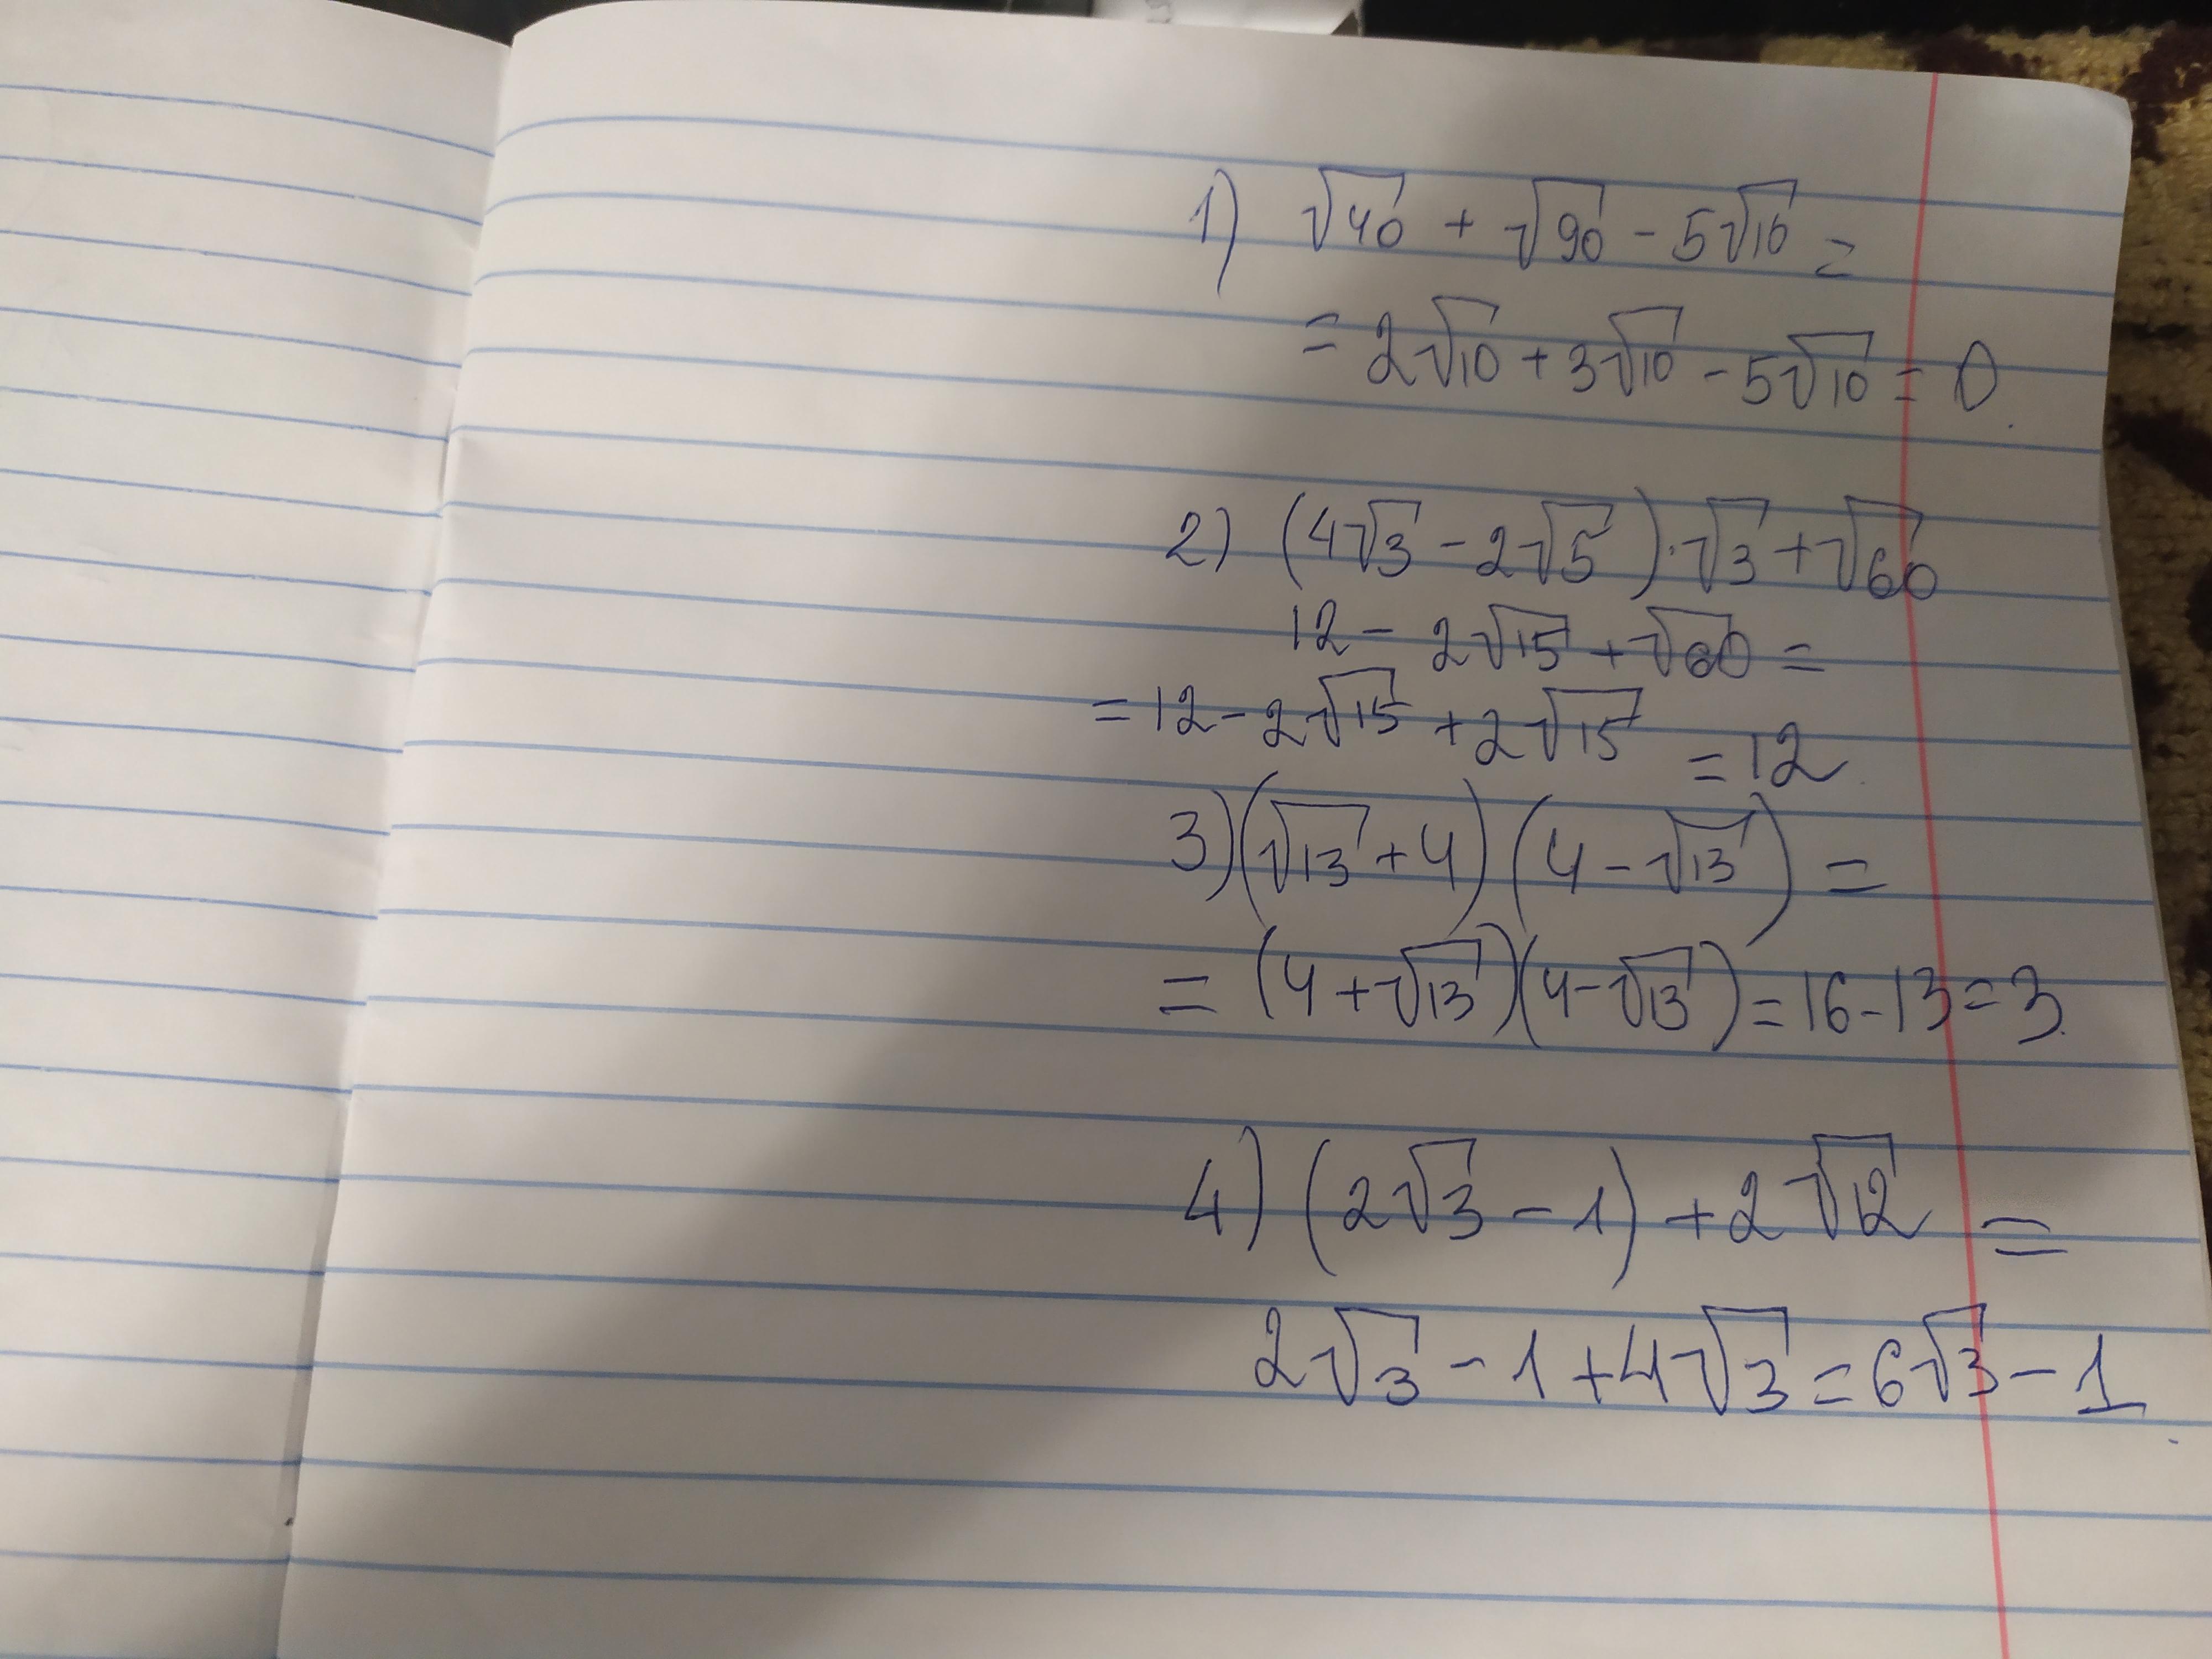 1) √40 + √90 - 5√10 =
= 2√10 + 3√10 - 5√10 = 0.
2) (4√3 - 2√5)·√3 + √60
12 - 2√15 + √60 =
= 12 - 2√15 + 2√15 = 12.
3) (√13 + 4)(4 - √13) =
= (4 + √13)(4 - √13) = 16 - 13 = 3.
4) (2√3 - 1) + 2√12 =
2√3 - 1 + 4√3 = 6√3 - 1.